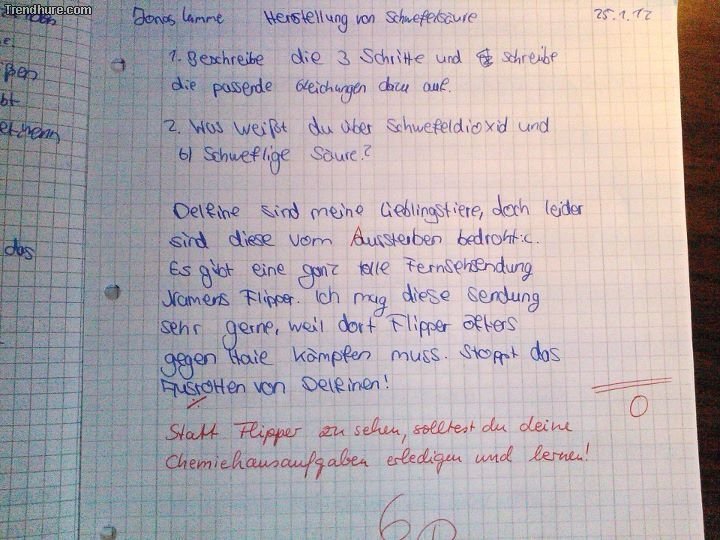 Trendhure.com
Jonas Lamme Herstellung von Schwefelsäure 25.1.12
1. Beschreibe die 3 Schritte und schreibe
die passende Gleichungen dazu auf.
2. Was weißt du über Schwefeldioxid und
b) Schweflige Säure?
Delfine sind meine Lieblingstiere, doch leider
sind diese vom Aussterben bedroht :c.
Es gibt eine ganz tolle Fernsehsendung
Namens Flipper. Ich mag diese Sendung
sehr gerne, weil dort Flipper öfters
gegen Haie kämpfen muss. Stoppt das
Ausrotten von Delfinen!
0
Statt Flipper zu sehen, solltest du deine
Chemiehausaufgaben erledigen und lernen!
6
das